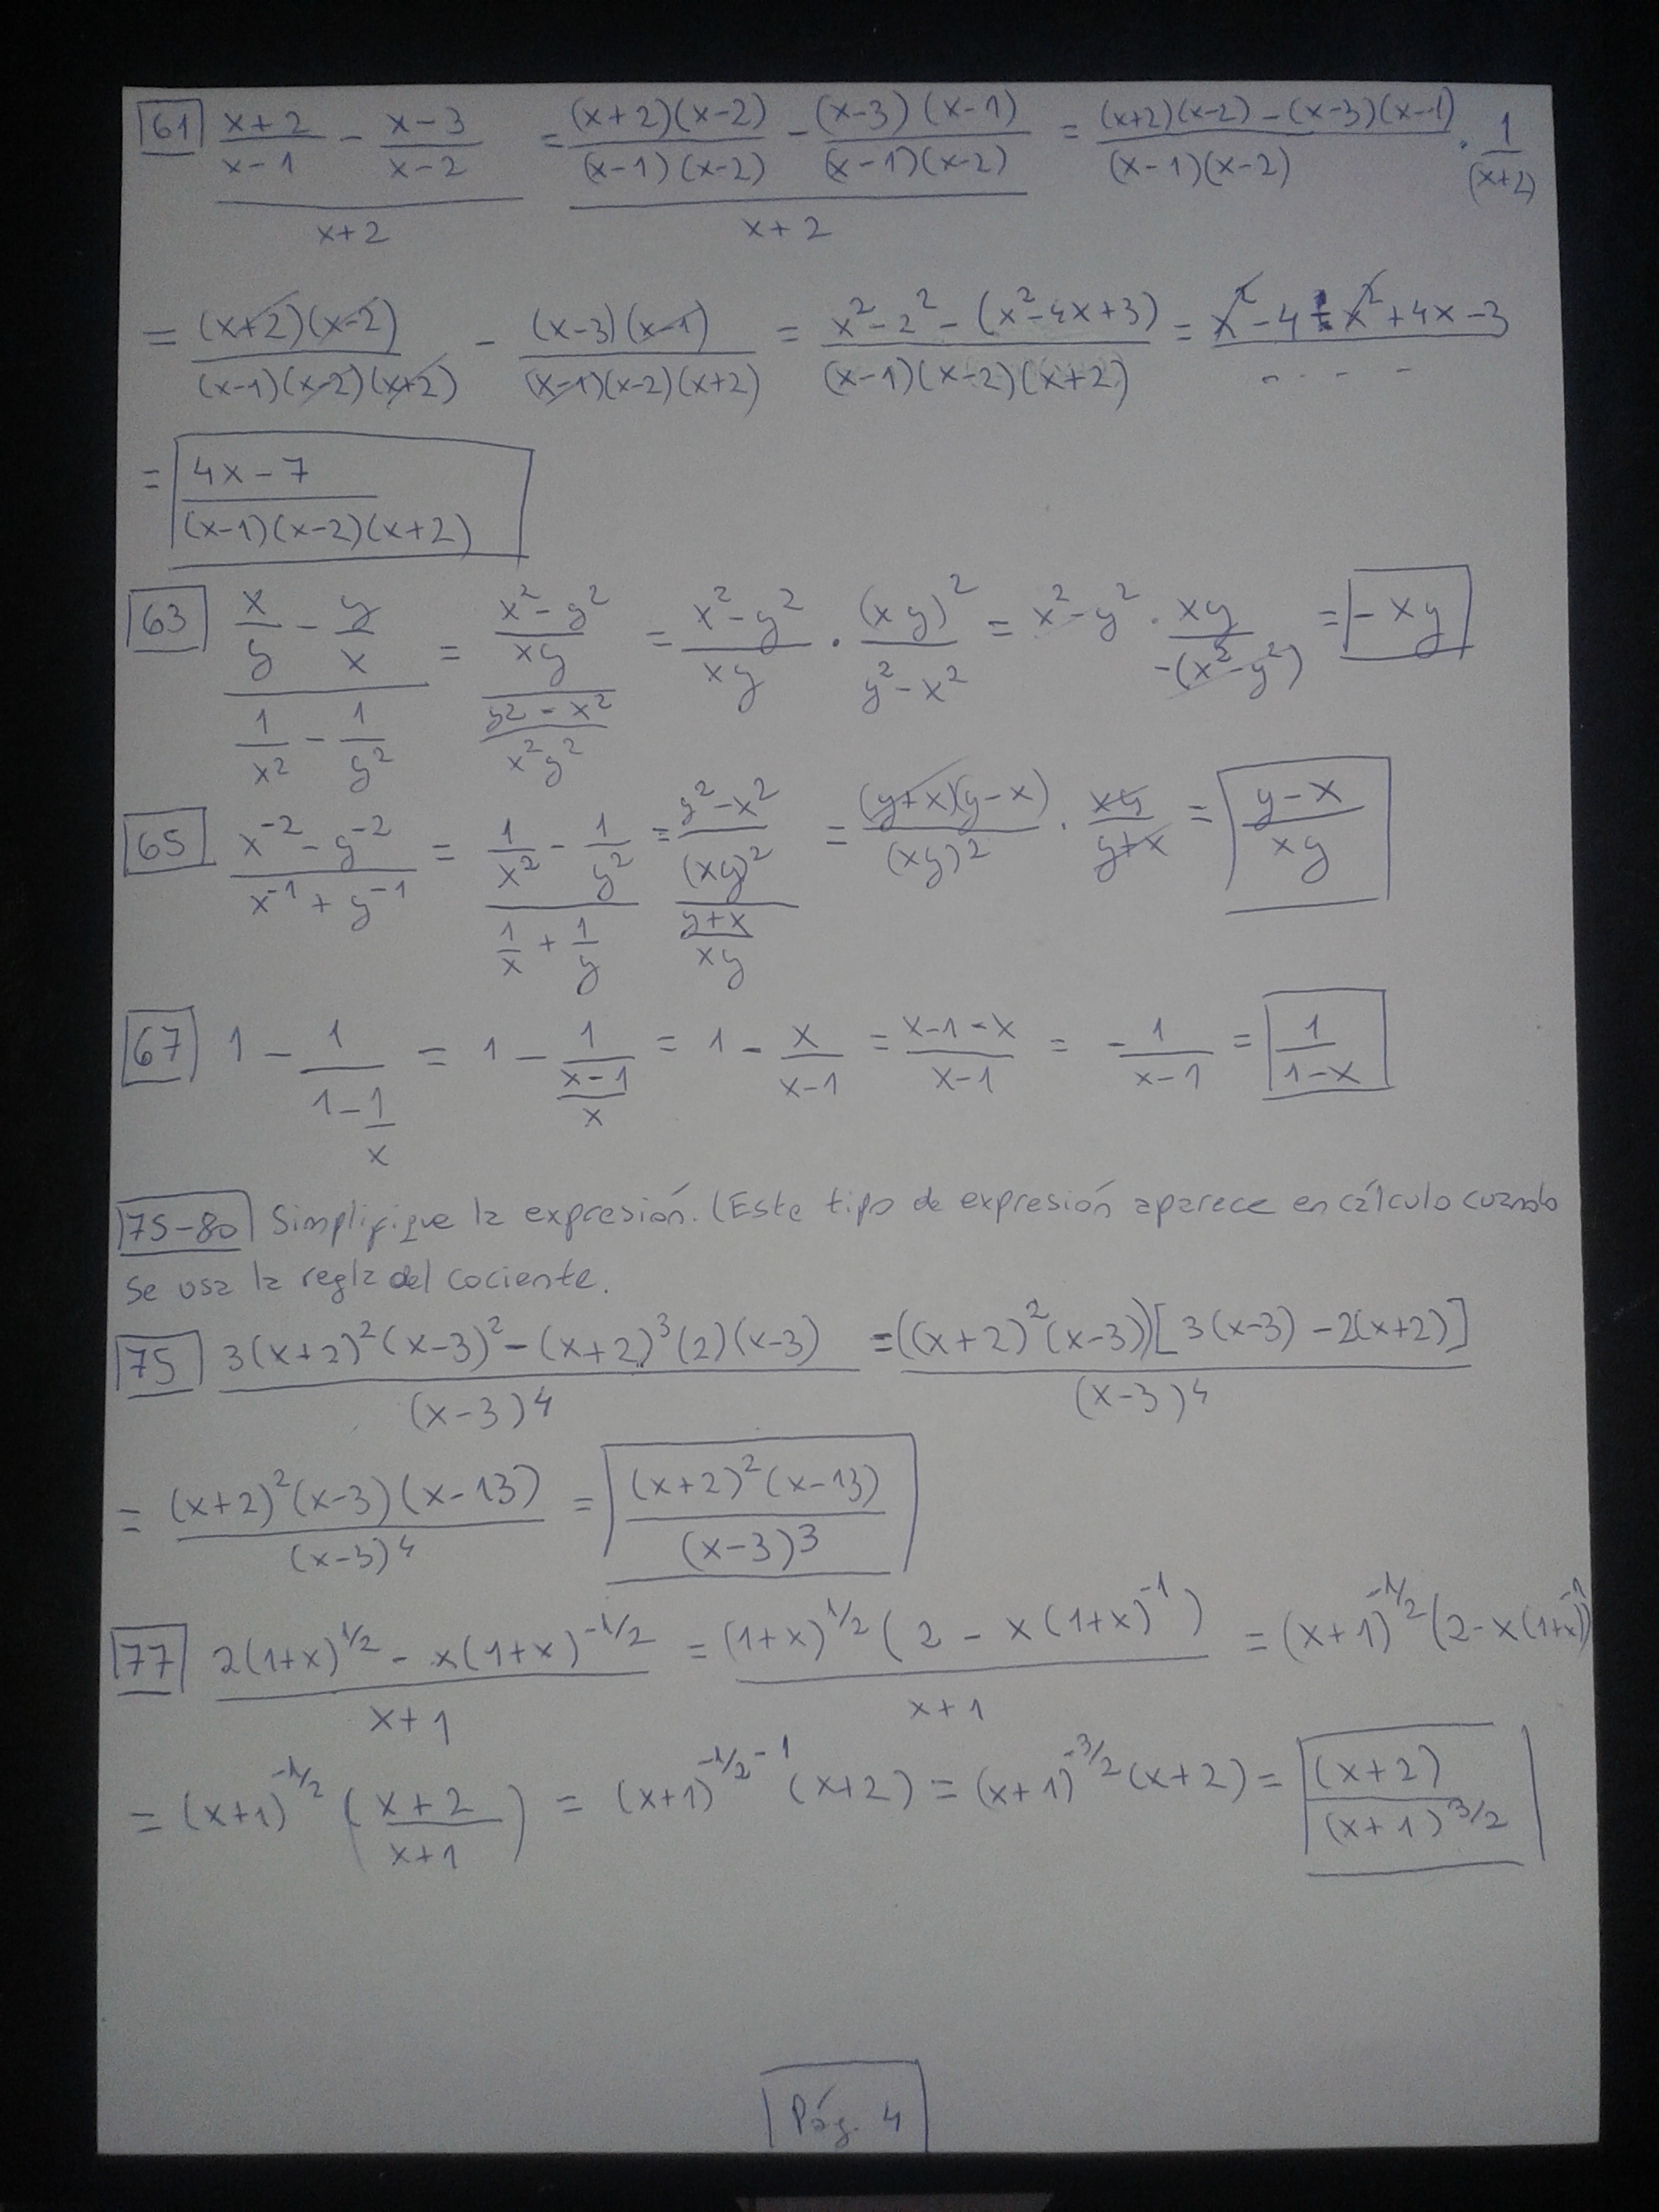 61 \frac{\frac{x+2}{x-1} - \frac{x-3}{x-2}}{x+2} = \frac{\frac{(x+2)(x-2)}{(x-1)(x-2)} - \frac{(x-3)(x-1)}{(x-1)(x-2)}}{x+2} = \frac{(x+2)(x-2)-(x-3)(x-1)}{(x-1)(x-2)} · \frac{1}{(x+2)}
= \frac{(x+2)(x-2)}{(x-1)(x-2)(x+2)} - \frac{(x-3)(x-1)}{(x-1)(x-2)(x+2)} = \frac{x²-2²-(x²-4x+3)}{(x-1)(x-2)(x+2)} = \frac{x²-4-x²+4x-3}{- - - -}
= \frac{4x-7}{(x-1)(x-2)(x+2)}
63 \frac{\frac{x}{y} - \frac{y}{x}}{\frac{1}{x²} - \frac{1}{y²}} = \frac{\frac{x²-y²}{xy}}{\frac{y²-x²}{x²y²}} = \frac{x²-y²}{xy} · \frac{(xy)²}{y²-x²} = x²-y² · \frac{xy}{-(x²-y²)} = -xy
65 \frac{x^{-2}-y^{-2}}{x^{-1}+y^{-1}} = \frac{\frac{1}{x²} - \frac{1}{y²}}{\frac{1}{x} + \frac{1}{y}} = \frac{\frac{y²-x²}{(xy)²}}{\frac{y+x}{xy}} = \frac{(y+x)(y-x)}{(xy)²} · \frac{xy}{y+x} = \frac{y-x}{xy}
67 1 - \frac{1}{1-\frac{1}{x}} = 1 - \frac{1}{\frac{x-1}{x}} = 1 - \frac{x}{x-1} = \frac{x-1-x}{x-1} = -\frac{1}{x-1} = \frac{1}{1-x}
75-80 Simplifique la expresión. (Este tipo de expresión aparece en cálculo cuando
se usa la regla del cociente.
75 \frac{3(x+2)²(x-3)²-(x+2)³(2)(x-3)}{(x-3)⁴} = \frac{((x+2)²(x-3))[3(x-3)-2(x+2)]}{(x-3)⁴}
= \frac{(x+2)²(x-3)(x-13)}{(x-3)⁴} = \frac{(x+2)²(x-13)}{(x-3)³}
77 \frac{2(1+x)^{1/2} - x(1+x)^{-1/2}}{x+1} = \frac{(1+x)^{1/2}(2-x(1+x)^{-1})}{x+1} = (x+1)^{-1/2}(2-x(1+x)^{-1})
= (x+1)^{-1/2}(\frac{x+2}{x+1}) = (x+1)^{-1/2-1}(x+2) = (x+1)^{-3/2}(x+2) = \frac{(x+2)}{(x+1)^{3/2}}
Pág. 4